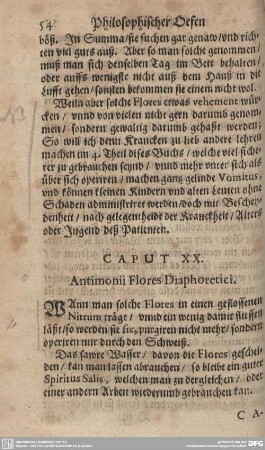 54 Philosophischer Oefen
böß. In Summa/sie suchen gar genaw/vnd rich-
ten viel guts auß. Aber so man solche genommen/
muß man sich denselben Tag im Bett behalten/
oder auffs wenigste nicht auß dem Hauß in die
Lufft gehen/sonsten bekommen sie einem nicht wol.
Weiln aber solche Flores etwas vehement wür-
cken/ vnnd von vielen nicht gern darumb genom-
men/ sondern gewaltig darumb gehaßt werden;
So will ich denn Krancken zu lieb andere lehren
machen im 4. Theil dises Buchs/ welche viel siche-
rer zu gebrauchen seynd/ vnnd mehr vnter sich als
über sich operiren/ machen gantz gelinde Vomitus;
vnd können kleinen Kindern vnd alten Leuten ohne
Schaden administriret werden/doch mit Beschey-
denheit/ nach gelegenheidt der Kranckheit/ Alters
oder Jugend deß Patienten.
CAPUT XX.
Antimonii Flores Diaphoretici.
Wann man solche Flores in einen geflossenen
Nitrum träge/ vnnd ein wenig damit fliessen
läßt/so werden sie fix, purgiren nicht mehr/sondern
operiren nur durch den Schweiß.
Das sawre Wasser/ davon die Flores geschie-
den/ kan man lassen abrauchen/ so bleibt ein guter
Spiritus Salis, welchen man zu dergleichen/ oder
einer andern Arbeit wiederumb gebrauchen kan.
C A-